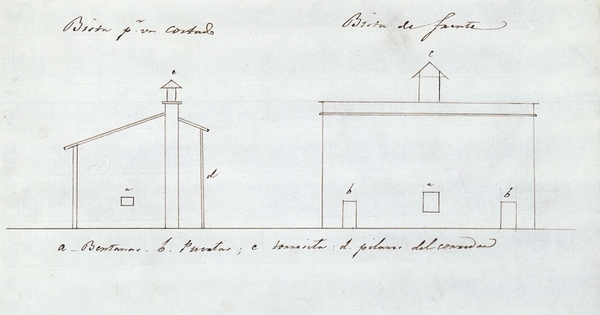 Bista pr un costado
Bista de frente
c
c
a
d
b
a
b
a - Bentanas. b. Puertas; c torresita: d. pilares del corredor